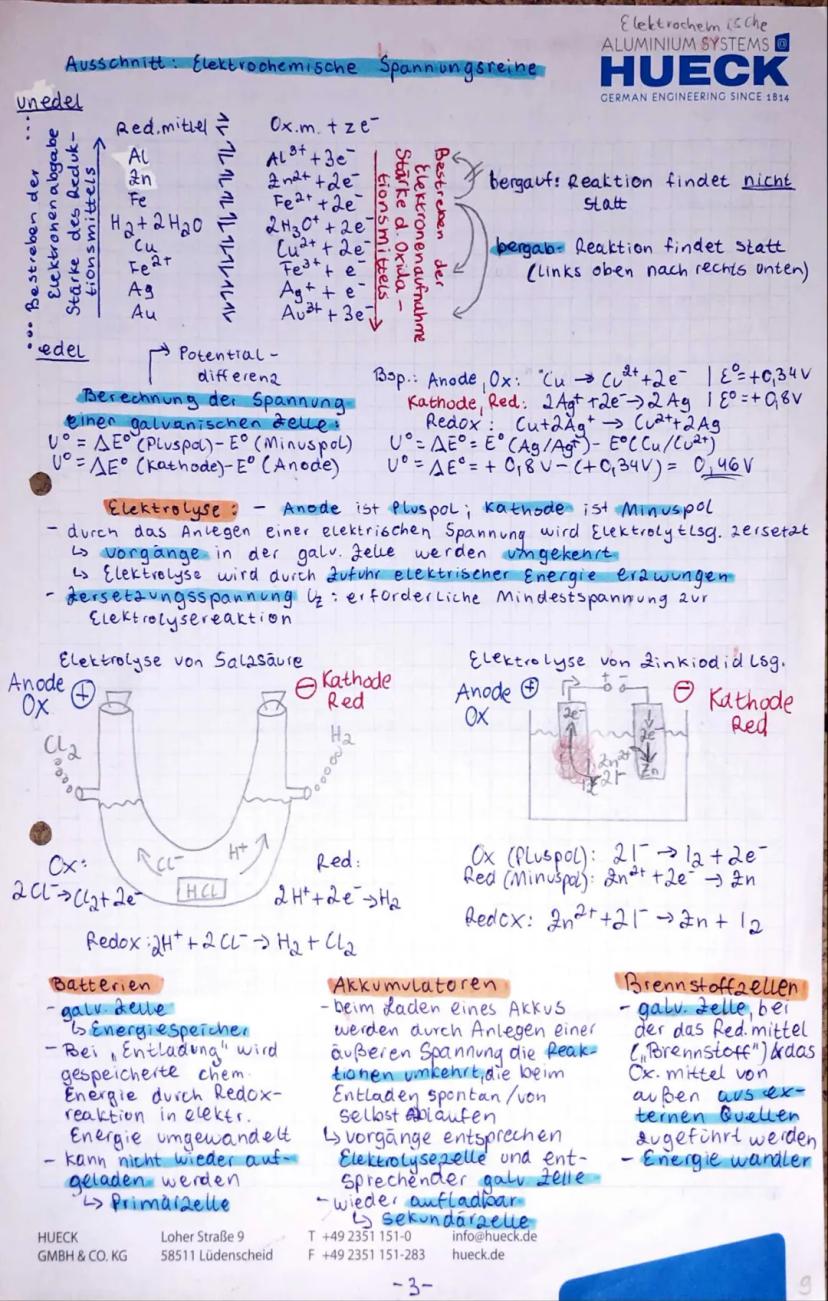 Elektrochemische
ALUMINIUM SYSTEMS
HUECK
GERMAN ENGINEERING SINCE 1814
Ausschnitt: Elektrochemische Spannungsreihe
unedel
Red.mittel ⇌ Ox.m. + ze⁻
Al ⇌ Al³⁺ + 3e⁻
Zn ⇌ Zn²⁺ + 2e⁻
Fe ⇌ Fe²⁺ + 2e⁻
H₂ + 2H₂O ⇌ 2H₃O⁺ + 2e⁻
Cu ⇌ Cu²⁺ + 2e⁻
Fe²⁺ ⇌ Fe³⁺ + e⁻
Ag ⇌ Ag⁺ + e⁻
Au ⇌ Au³⁺ + 3e⁻
edel
... Bestreben der
Elektronenabgabe
Stärke des Reduk-
tionsmittels
Bestreben der
Elektronenaufnahme
Stärke d. Oxida-
tionsmittels
bergauf: Reaktion findet nicht
statt
bergab: Reaktion findet statt
(links oben nach rechts unten)
Potential-
differenz
Berechnung der Spannung
einen galvanischen Zelle:
U° = ΔE° (Pluspol) - E° (Minuspol)
U° = ΔE° (Kathode) - E° (Anode)
Bsp.: Anode, Ox: Cu → Cu²⁺ + 2e⁻ | E° = +0,34V
Kathode, Red: 2Ag⁺ + 2e⁻ → 2Ag | E° = +0,8V
Redox: Cu + 2Ag⁺ → Cu²⁺ + 2Ag
U° = ΔE° = E° (Ag/Ag⁺) - E° (Cu/Cu²⁺)
U° = ΔE° = + 0,8V - (+0,34V) = 0,46V
Elektrolyse: - Anode ist Pluspol; Kathode ist Minuspol
- durch das Anlegen einer elektrischen Spannung wird Elektrolytlsg. zersetzt
↳ Vorgänge in der galv. Zelle werden umgekehrt
↳ Elektrolyse wird durch Zufuhr elektrischer Energie erzwungen
- Zersetzungsspannung Uz: erforderliche Mindestspannung zur
Elektrolysereaktion
Elektrolyse von Salzsäure
Anode ⊕
Ox
⊖ Kathode
Red
Cl₂
H₂
Cl⁻
H⁺
HCl
Ox:
2Cl⁻ → Cl₂ + 2e⁻
Red:
2H⁺ + 2e⁻ → H₂
Redox: 2H⁺ + 2Cl⁻ → H₂ + Cl₂
Elektrolyse von Zinkiodid lsg.
Anode ⊕
Ox
+ -
⊖ Kathode
Red
2e⁻
2e⁻
Zn²⁺
2I⁻
I₂
Zn
Ox (Pluspol): 2I⁻ → I₂ + 2e⁻
Red (Minuspol): Zn²⁺ + 2e⁻ → Zn
Redox: Zn²⁺ + 2I⁻ → Zn + I₂
Batterien
- galv. Zelle
↳ Energiespeicher
- Bei „Entladung" wird
gespeicherte chem.
Energie durch Redox-
reaktion in elektr.
Energie umgewandelt
- kann nicht wieder auf-
geladen werden
↳ Primärzelle
Akkumulatoren
- beim Laden eines Akkus
werden durch Anlegen einer
äußeren Spannung die Reak-
tionen umkehrt, die beim
Entladen spontan/von
selbst ablaufen
↳ Vorgänge entsprechen
Elektrolysezelle und ent-
sprechender galv Zelle
- wieder aufladbar
↳ Sekundärzelle
Brennstoffzellen
- galv. Zelle, bei
der das Red.mittel
(„Brennstoff") & das
Ox. mittel von
außen aus ex-
ternen Quellen
zugeführt werden
- Energie wandler
HUECK
GMBH & CO. KG
Loher Straße 9
58511 Lüdenscheid
T +49 2351 151-0
F +49 2351 151-283
info@hueck.de
hueck.de
-3-
9